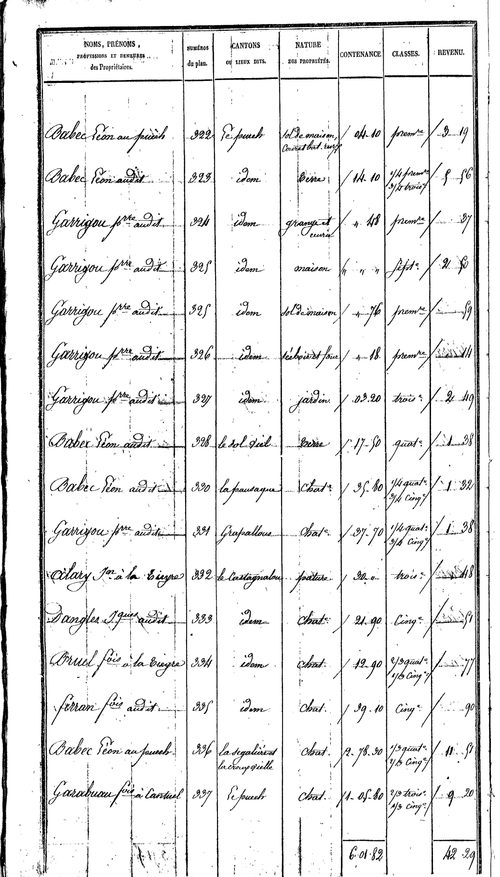 NOMS, PRÉNOMS, PROFESSIONS ET DEMEURES des Propriétaires. NUMÉROS du plan. CANTONS OU LIEUX DITS. NATURE DES PROPRIÉTÉS. CONTENANCE CLASSES. REVENU.
Babec Léon au puech 322 Le puech sol de maison, 04.10 premre 3 19
Babec Léon audit 323 idem terre 14.10 1/4 premre 3/4 troise 5 56
Garrigou prre audit 324 idem grange et " 48 premre 37
Garrigou prre audit 325 idem maison " " " sept. 2 50
Garrigou prre audit 325 idem sol de maison " 76 premre 59
Garrigou prre audit 326 idem et four " 18 premre 14
Garrigou prre audit 327 idem jardin 03.20 trois. 2 49
Babec Léon audit 328 le sol terre 17.50 quat. 1 38
Babec Léon audit 330 chat. 35.80 1/4 quat. 3/4 cinq. 1 32
Garrigou prre audit 331 Grapallous chat. 37.70 1/4 quat. 3/4 cinq. 1 38
Clary Jn à la 332 le Castagnalou pature 32." trois. " 48
Dangles Jques audit 333 idem chat. 21.90 Cinq. 51
Bruel fois à la 334 idem chat. 12.90 2/3 quat. 1/3 cinq. 77
ferran fois audit 335 idem chat. 39.10 Cinq. 90
Babec Léon au puech 336 chat. 2.78.30 1/3 quat. 2/3 cinq. 11 51
fois à 337 Le puech chat. 1.05.80 2/3 trois. 1/3 cinq. 9 20
6.01.82 42 29